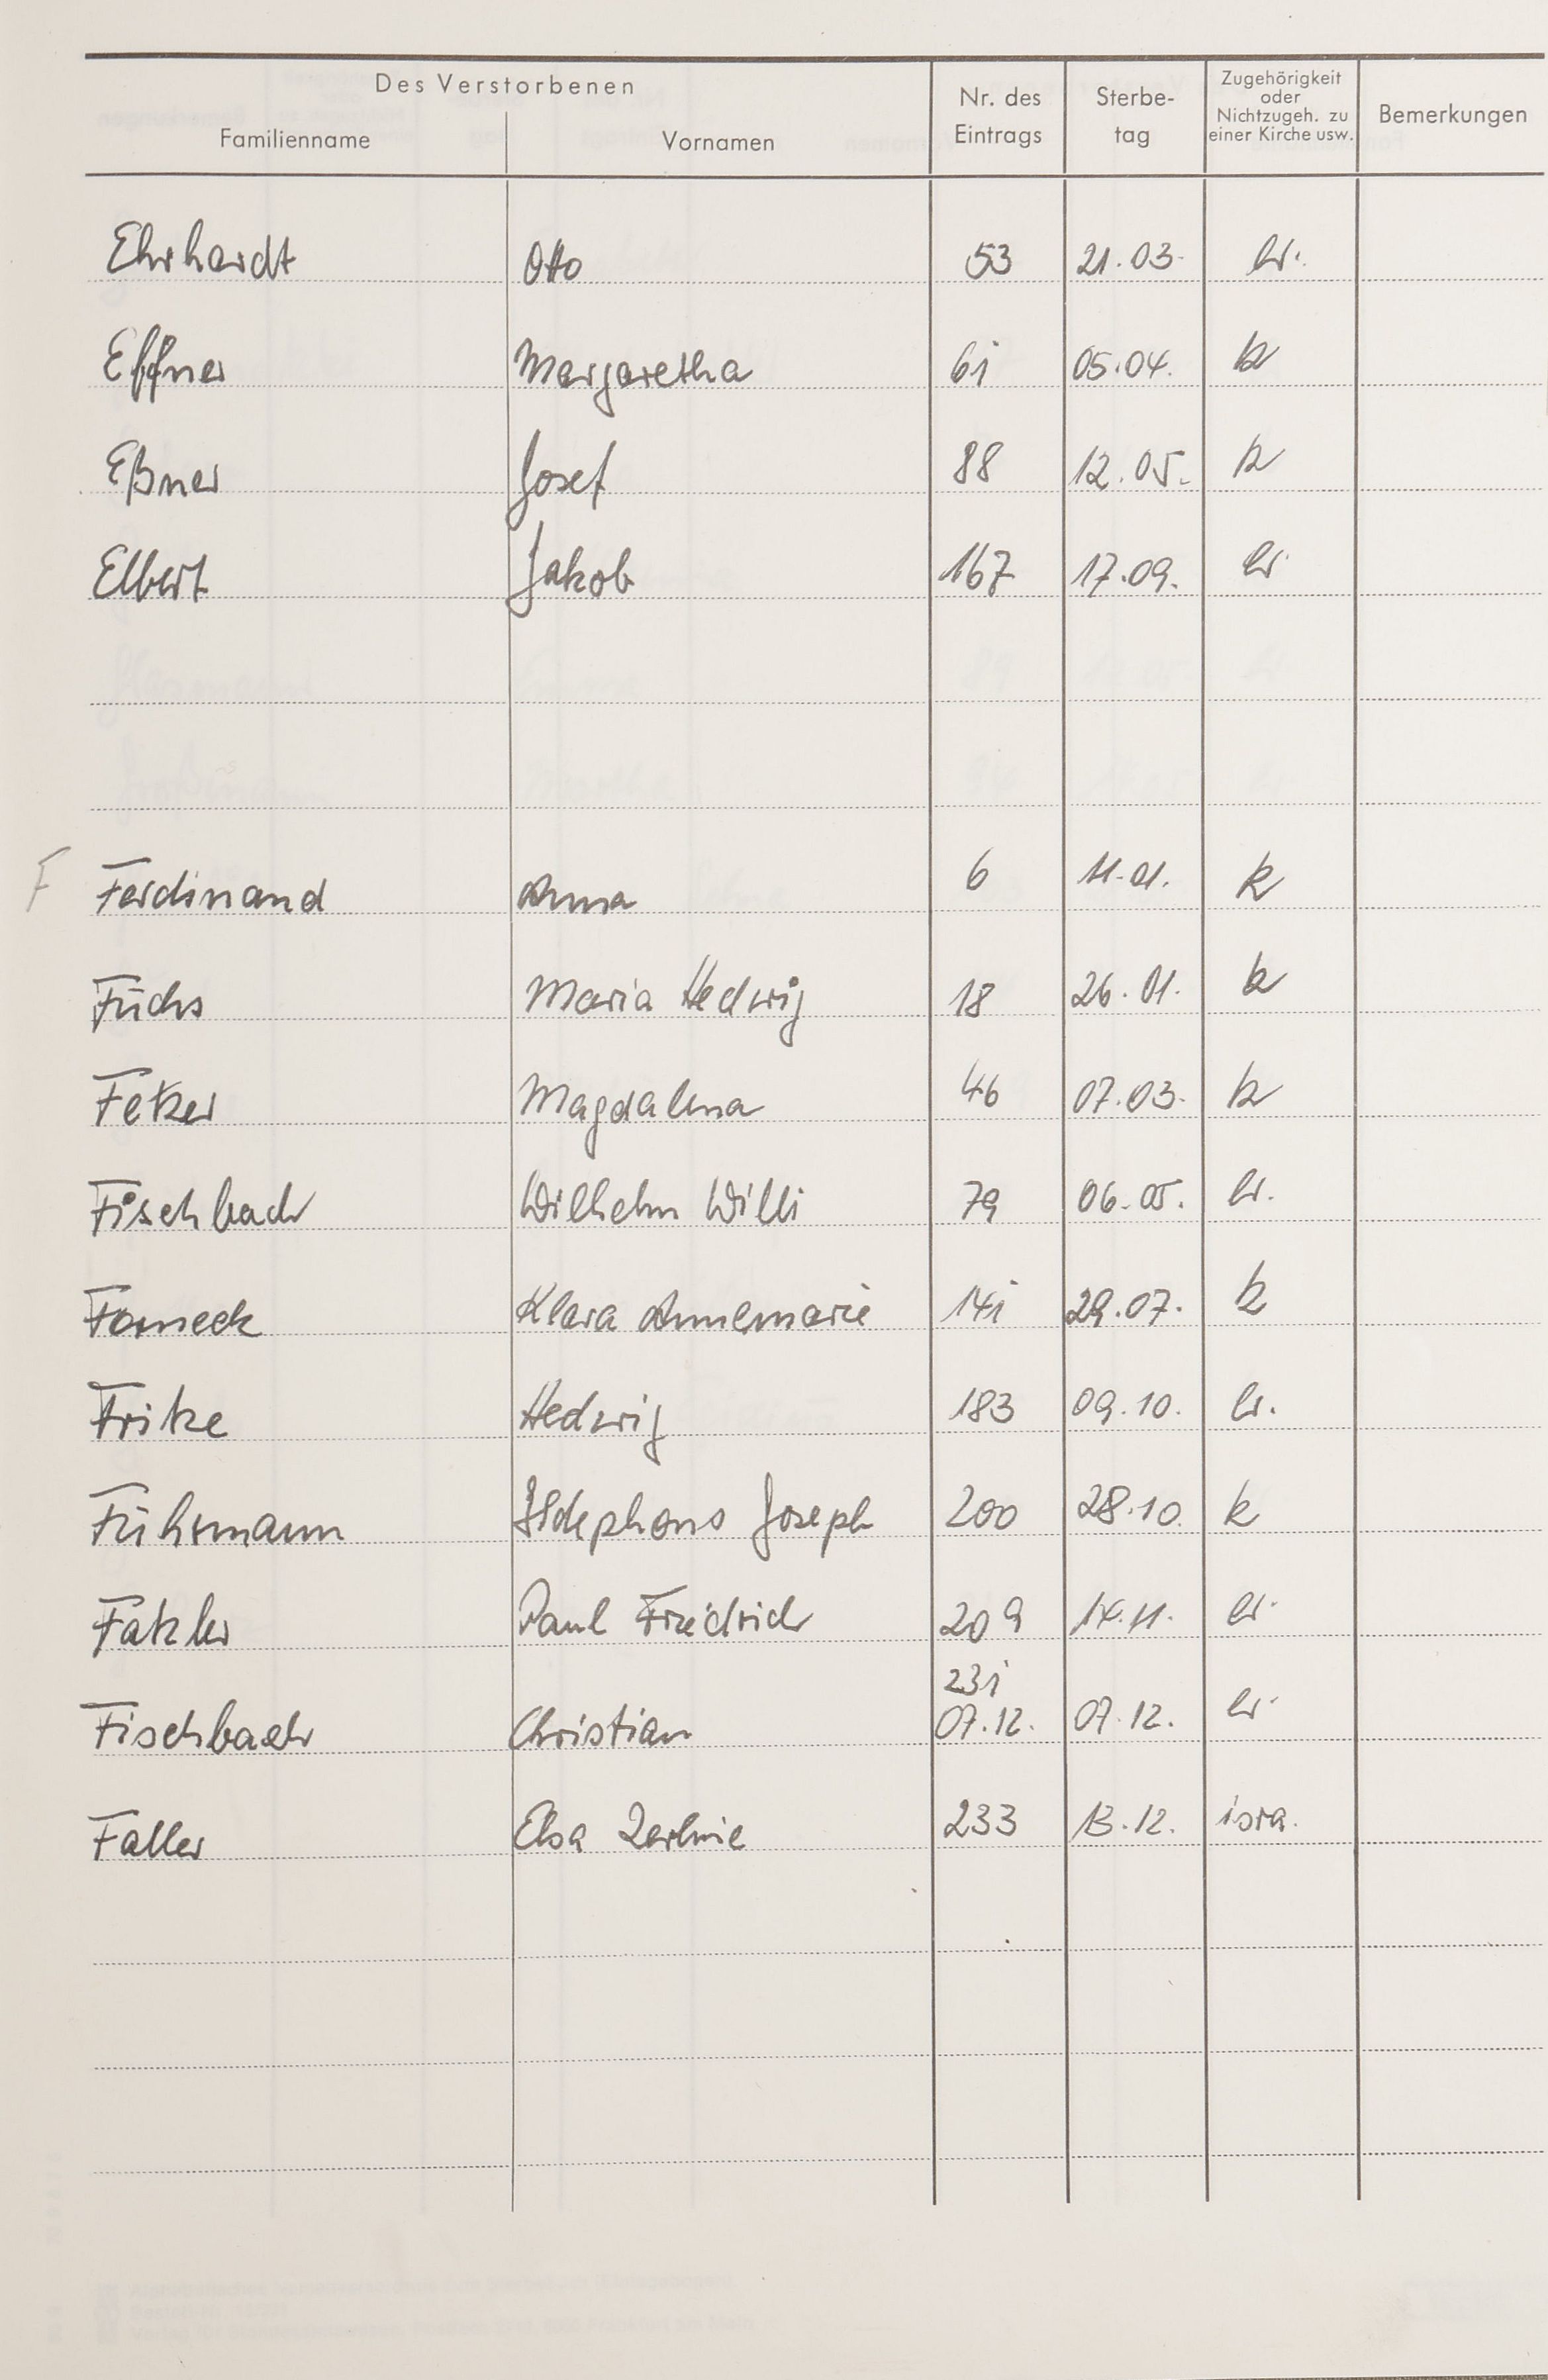 Des Verstorbenen
Familienname Vornamen Nr. des Eintrags Sterbe-tag Zugehörigkeit oder Nichtzugeh. zu einer Kirche usw. Bemerkungen
Ehrhardt Otto 53 21.03. ev.
Effner Margaretha 61 05.04. k
Eßner Josef 88 12.05. k
Elbert Jakob 167 17.09. ev.
F Ferdinand Anna 6 11.01. k
Fuchs Maria Hedwig 18 26.01. k
Fetzer Magdalena 46 07.03. k
Fischbach Wilhelm Willi 79 06.05. ev.
Forneck Klara Annemarie 141 29.07. k
Fritze Hedwig 183 09.10. ev.
Fuhrmann Ildephons Joseph 200 28.10. k
Fatzler Paul Friedrich 209 14.11. ev.
231
Fischbach Christian 07.12. 07.12. ev.
Faller Elsa 233 13.12. isra.